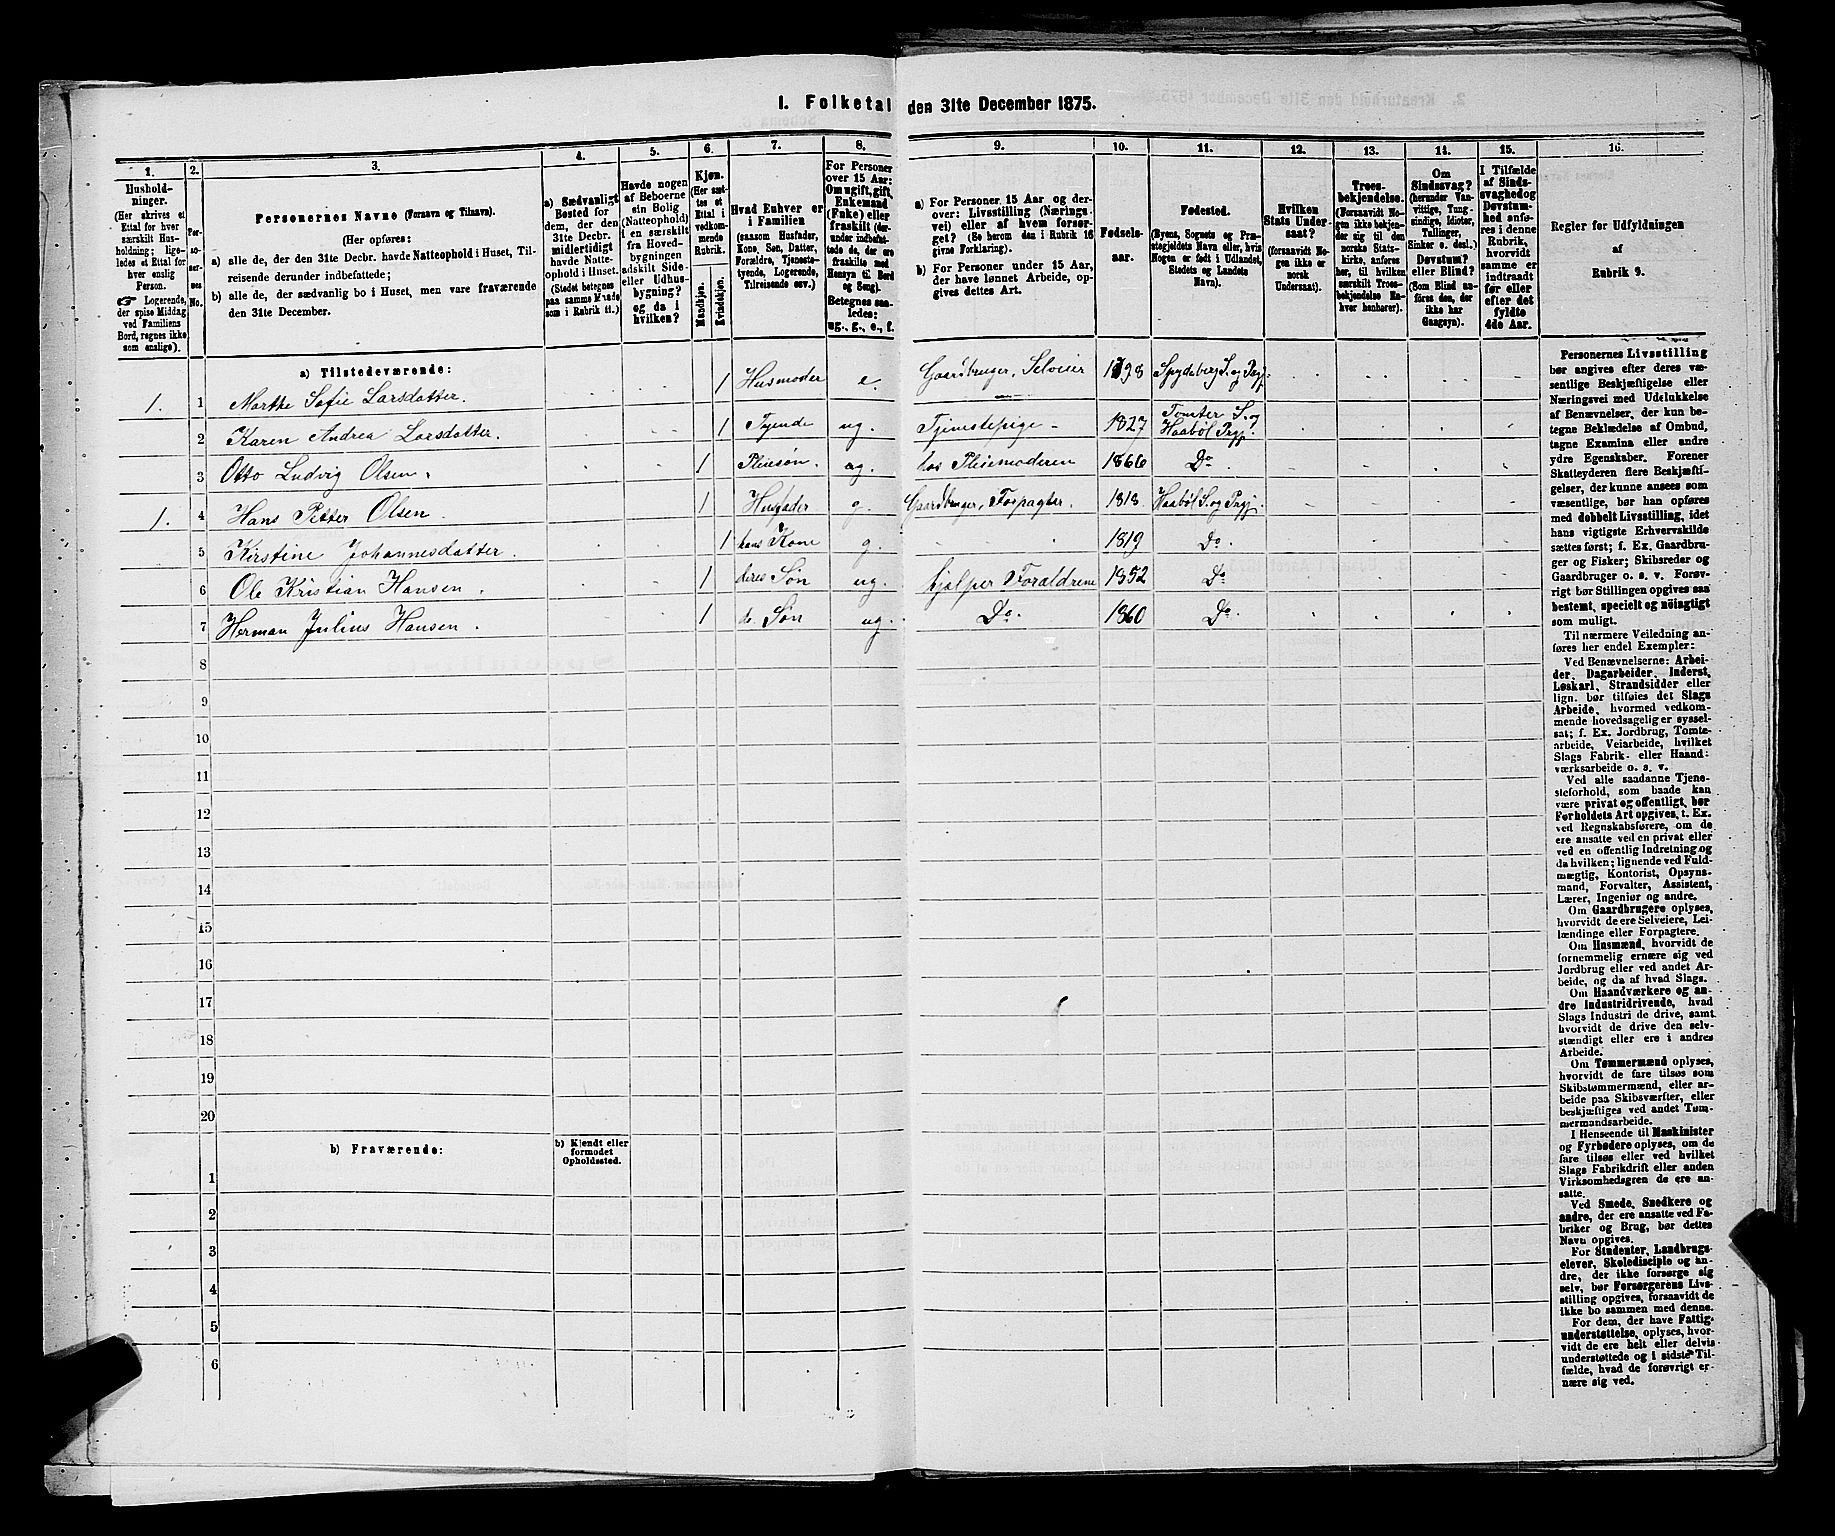 I. Folketal den 31te December 1875.
1. 2. 3. 4. 5. 6. 7. 8. 9. 10. 11. 12. 13. 14. 15. 16.
Hushold-
ninger.
(Her skrives et
Ettal for hver
særskilt Hus-
holdning; lige-
ledes et Ettal for
hver enslig
Person.
☞ Logerende,
der spise Middag
ved Familiens
Bord, regnes ikke
som enslige).
Per-
so-
ner-
nes
No.
Personernes Navne (Fornavn og Tilnavn).
(Her opføres:
a) alle de, der den 31te Decbr. havde Natteophold i Huset, Til-
reisende derunder indbefattede;
b) alle de, der sædvanlig bo i Huset, men vare fraværende
den 31te December.
a) Sædvanligt
Bosted for
dem, der den
31te Decbr.
midlertidigt
havde Natte-
ophold i Huset.
(Stedet betegnes
paa samme Maade
som i Rubrik 11.)
Havde nogen
af Beboerne
sin Bolig
(Natteophold)
i en særskilt
fra Hoved-
bygningen
adskilt Side-
eller Udhus-
bygning?
og da i
hvilken?
Kjøn.
(Her sæt-
tes et
Ettal i
vedkom-
mende
Rubrik.
Mandkjøn.
Kvindekjøn.
Hvad Enhver er
i Familien
(saasom Husfader,
Kone, Søn, Datter,
Forældre, Tjeneste-
tyende, Logerende,
Tilreisende osv.)
For Personer
over 15 Aar:
Om ugift, gift,
Enkemand
(Enke) eller
fraskilt (der-
under indbefat-
tede de, der ere
fraskilte med
Hensyn til Bord
og Seng).
Betegnes saa-
ledes:
ug., g., e., f.
a) For Personer, 15 Aar og der-
over: Livsstilling (Nærings-
vei) eller af hvem forsør-
get? (Se herom den i Rubrik 16
givne Forklaring).
b) For Personer under 15 Aar,
der have lønnet Arbeide, op-
gives dettes Art.
Fødsels-
aar.
Fødested.
(Byens, Sognets og Præ-
stegjeldets Navn eller, hvis
Nogen er født i Udlandet,
Stedets og Landets
Navn).
Hvilken
Stats Under-
saat?
(forsaavidt No-
gen ikke er
norsk
Undersaat).
Troes-
bekjendelse.
(Forsaavidt No-
gen ikke bekjen-
der sig til den
norske Stats-
kirke, anføres
her, til hvilken
særskilt Troes-
bekjendelse En-
hver henhører).
Om
Sindssvag?
(herunder Van-
vittige, Tung-
sindige, Idioter,
Tullinger,
Sinker o. desl.)
Døvstum?
eller Blind?
(Som Blind an-
føres den, der
ikke har
Gangsyn).
I Tilfælde
af Sinds-
svaghed og
Døvstum-
hed anfø-
res i denne
Rubrik,
hvorvidt
samme er
indtraadt
før eller
efter det
fyldte
4de Aar.
Regler for Udfyldningen
af
Rubrik 9.
a) Tilstedeværende:
1. 1 Marthe Sofie Larsdatter. 1 Husmoder e Gaardbruger, Selveier 1798 Spydeberg S. og Prgj.
2 Karen Andrea Larsdatter. 1 Tyende ug. Tjenestepige 1827 Tomter S. og Haabøl Prgj.
3 Otto Ludvig Olsen. 1 Pleiesøn. ug. hos Pleiemoderen 1866 Do.
1. 4 Hans Petter Olsen. 1 Husfader g. Gaardbruger, Forpagter. 1818 Haabøl S. og Prgj.
5 Kirstine Johannesdatter. 1 hans Kone g. 1819 Do.
6 Ole Kristian Hansen. 1 deres Søn ug. hjælper Foraldrene 1852 Do
7 Herman Julius Hansen. 1 do. Søn ug. Do. 1860 Do.
8
9
10
11
12
13
14
15
16
17
18
19
20
b) Fraværende:
b) Kjendt eller
formodet
Opholdssted.
1
2
3
4
5
6
Personernes Livsstilling
bør angives efter deres væ-
sentlige Beskjæftigelse eller
Næringsvei med Udelukkelse
af Benævnelser, der kun be-
tegne Beklædelse af Ombud,
tagne Examina eller andre
ydre Egenskaber. Forener
Skatteyderen flere Beskjæfti-
gelser, der kunne ansees som
væsentlige, bør han opføres
med dobbelt Livsstilling, idet
hans vigtigste Erhvervskilde
sættes først; f. Ex. Gaardbru-
ger og Fisker; Skibsreder og
Gaardbruger o. s. v. Forøv-
rigt bør Stillingen opgives saa
bestemt, specielt og nöiagtigt
som muligt.
Til nærmere Veiledning an-
føres her endel Exempler:
Ved Benævnelserne: Arbei-
der, Dagarbeider, Inderst,
Løskarl, Strandsidder eller
lign. bør tilføies det Slags
Arbeide, hvormed vedkom-
mende hovedsagelig er syssel-
sat; f. Ex. Jordbrug, Tomte-
arbeide, Veiarbeide, hvilket
Slags Fabrik- eller Haand-
værksarbeide o. s. v.
Ved alle saadanne Tjene-
steforhold, som baade kan
være privat og offentligt, bør
Forholdets Art opgives, t. Ex.
ved Regnskabsførere, om de
ere ansatte ved en privat eller
ved en offentlig Indretning og
da hvilken; lignende ved Fuld-
mægtig, Kontorist, Opsyns-
mand, Forvalter, Assistent,
Lærer, Ingeniør og andre.
Om Gaardbrugere oplyses,
hvorvidt de ere Selveiere, Lei-
lændinge eller Forpagtere.
Om Husmænd, hvorvidt de
fornemmelig ernære sig ved
Jordbrug eller ved andet Ar-
beide, og da af hvad Slags.
Om Haandværkere og an-
dre Industridrivende, hvad
Slags Industri de drive, samt
hvorvidt de drive den selv-
stændigt eller ere i andres
Arbeide.
Om Tømmermænd oplyses,
hvorvidt de fare tilsøs som
Skibstømmermænd, eller ar-
beide paa Skibsværfter, eller
beskjæftiges ved andet Tøm-
mermandsarbeide.
I Henseende til Maskinister
og Fyrbødere oplyses, om de
fare tilsøs eller ved hvilket
Slags Fabrikdrift eller anden
Virksomhedsgren de ere an-
satte.
Ved Smede, Snedkere og
andre, der ere ansatte ved Fa-
briker og Brug, bør dettes
Navn opgives.
For Studenter, Landbrugs-
elever, Skoledisciple og an-
dre, der ikke forsørge sig
selv, bør Forsørgerens Livs-
stilling opgives, forsaavidt de
ikke bo sammen med denne.
For dem, der have Fattig-
understøttelse, oplyses, hvor-
vidt de ere helt eller delvis
understøttede og i sidste Til-
fælde, hvad de forøvrigt er-
nære sig ved.